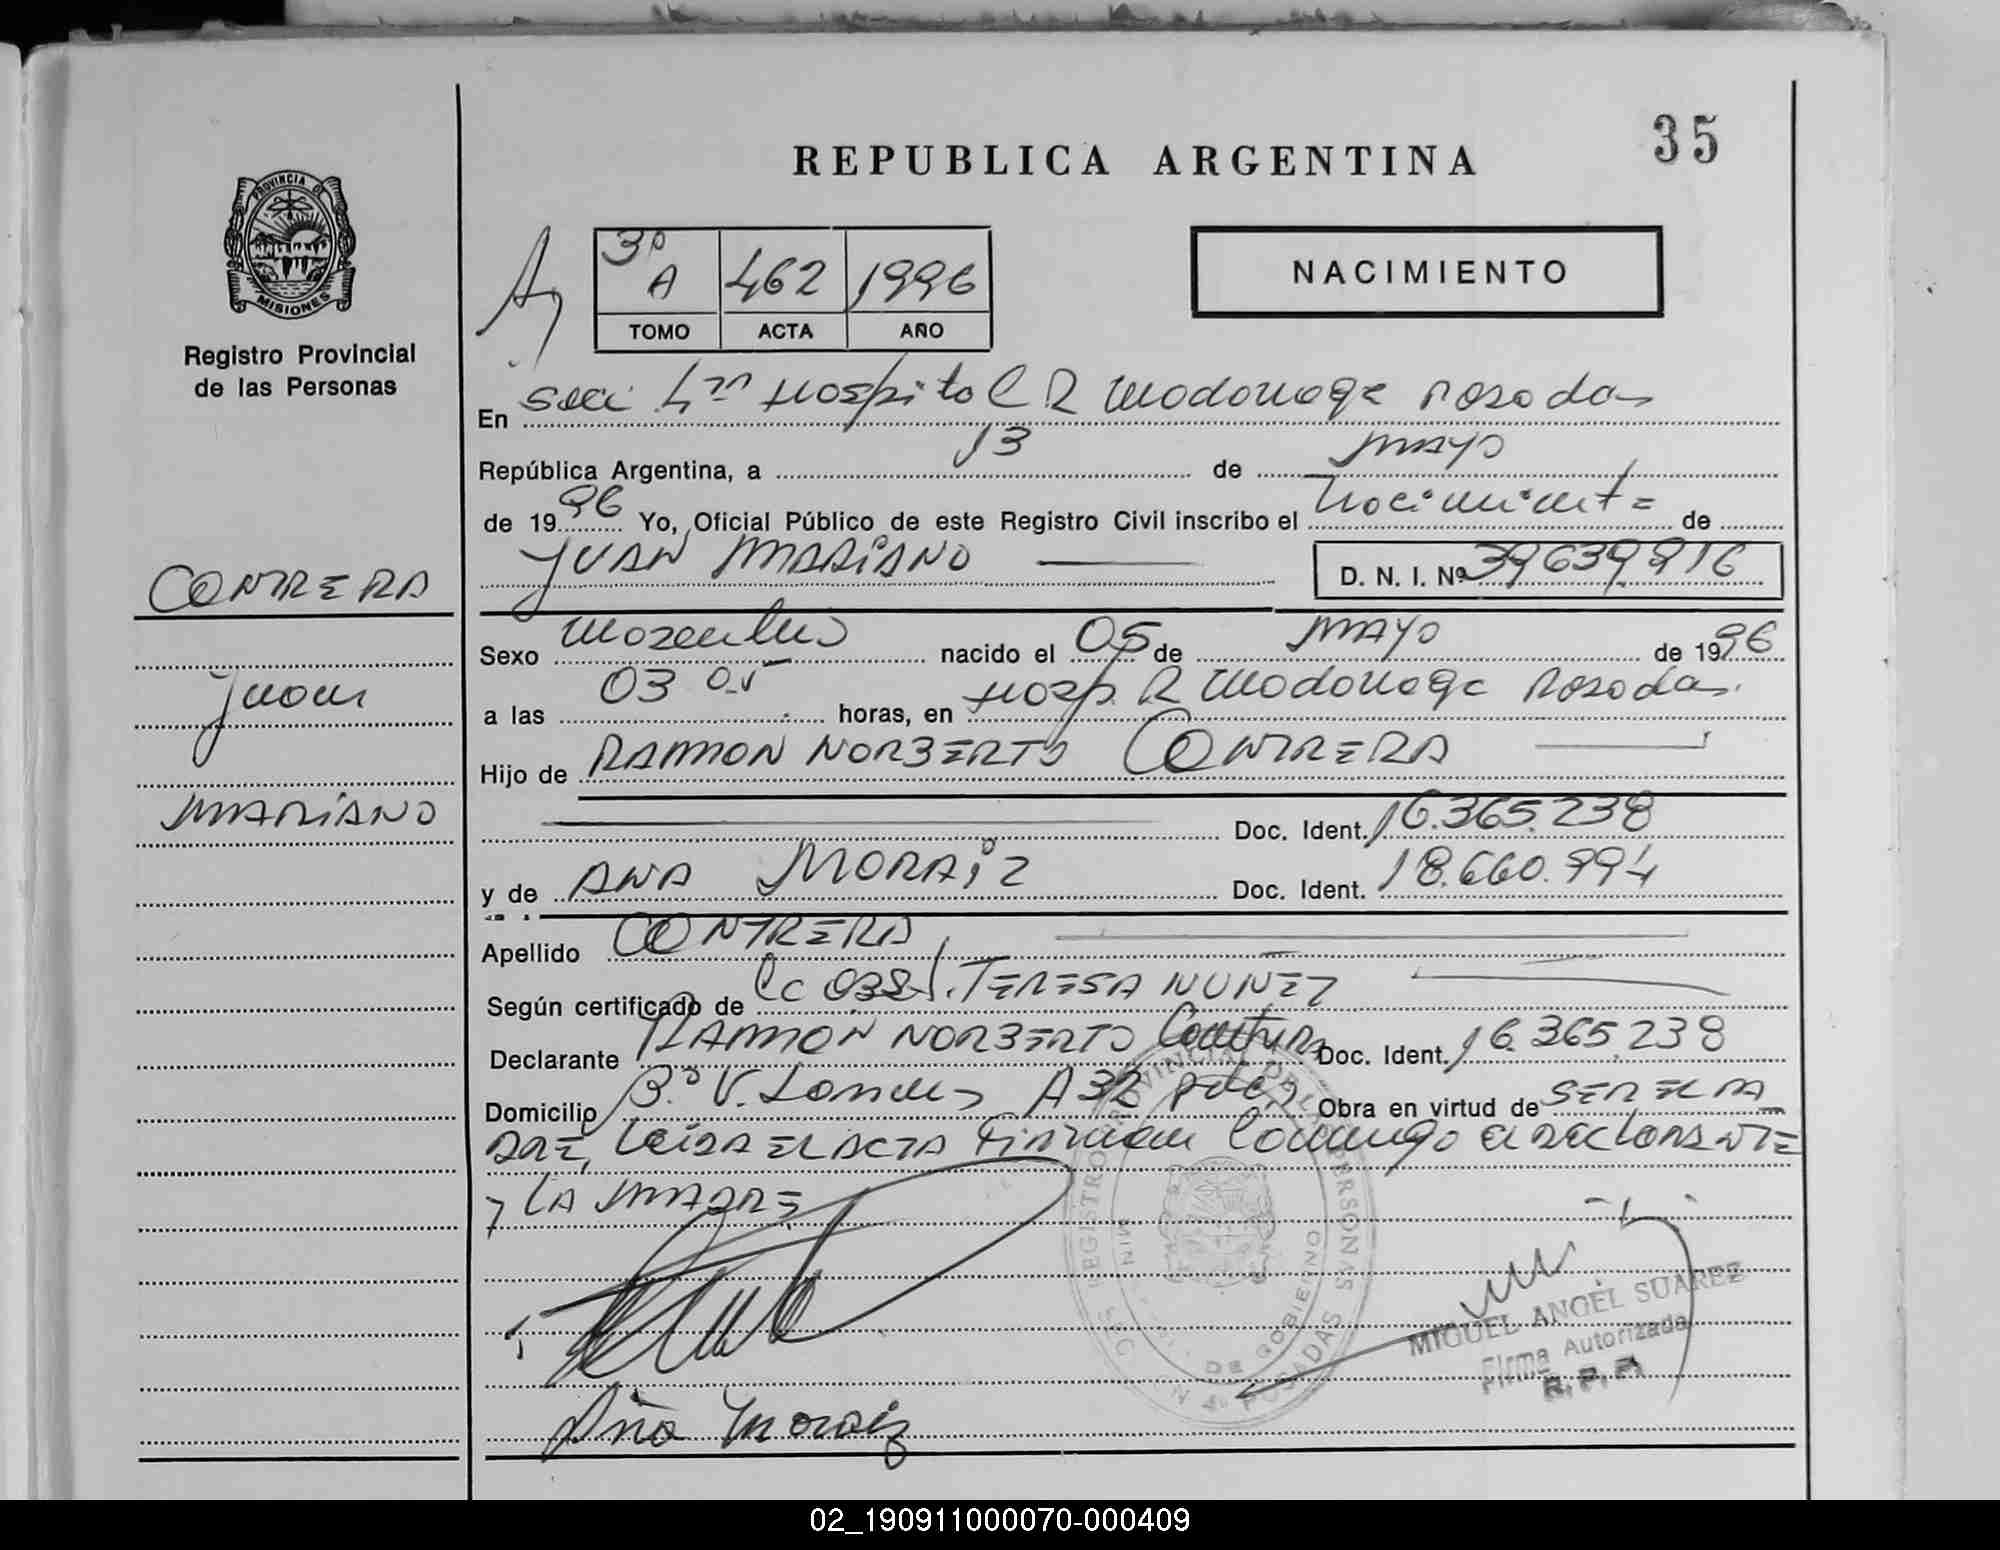 35
REPUBLICA ARGENTINA
PROVINCIA DE
MISIONES
Registro Provincial
de las Personas
3º A 462 1996
TOMO ACTA AÑO
NACIMIENTO
En Hospital R Madariaga Posadas
República Argentina, a 13 de MAYO
de 1996 Yo, Oficial Público de este Registro Civil inscribo el Nacimiento de
JUAN MARIANO D. N. I. Nº 39639916
CONTRERA
Juan
MARIANO
Sexo Masculino nacido el 05 de MAYO de 1996
a las 03 05 horas, en Hosp. R Madariaga Posadas.
Hijo de RAMON NORBERTO CONTRERA
Doc. Ident. 16.365.238
y de ANA MORAiZ Doc. Ident. 18.660.994
Apellido CONTRERA
Según certificado de TERESA NUNEZ
Declarante RAMON NORBERTO Contrera Doc. Ident. 16.365.238
Domicilio Bº V. A 32 pdas Obra en virtud de SER EL PA
DRE, LEIDA EL ACTA Firman Conmigo el DECLARANTE
y LA MADRE
REGISTRO PROVINCIAL DE LAS PERSONAS
MIN DE GOBIERNO
POSADAS
MIGUEL ANGEL SUAREZ
Firma Autorizada
R. P. P.
Ana Moraiz
02_190911000070-000409